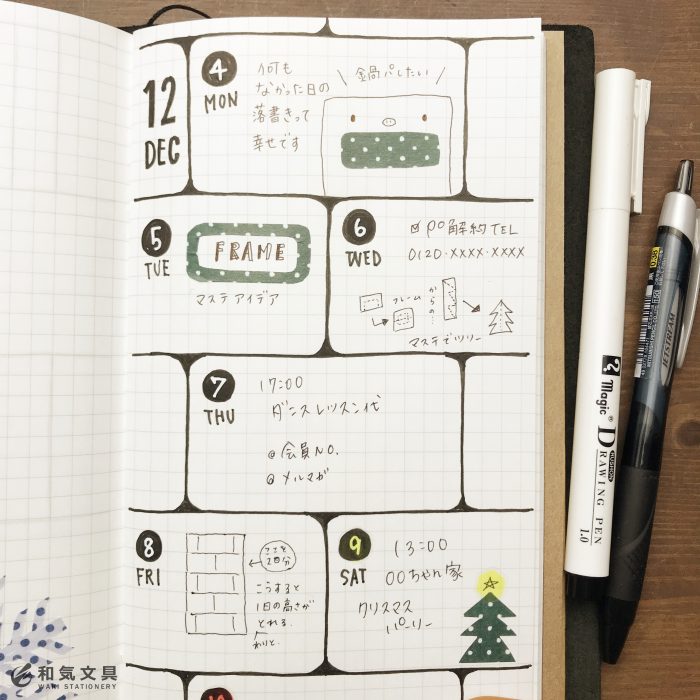 12
DEC
4
MON
何も
なかった日の
落書きって
幸せです
\ 鍋パしたい /
5
TUE
FRAME
マステ アイデア
6
WED
po解約TEL
0120-XXXX-XXXX
フレーム
からの…
マステでツリー
7
THU
17:00
ダンスレッスン代
@会員NO.
@メルマガ
8
FRI
ここを
2日分
こうすると
1日の高さが
とれる.
わりと.
9
SAT
13:00
○○ちゃん家
クリスマス
パーリー
10
Magic®
DRAWING PEN
1.0
JETSTREAM
和気文具
WAKI STATIONERY